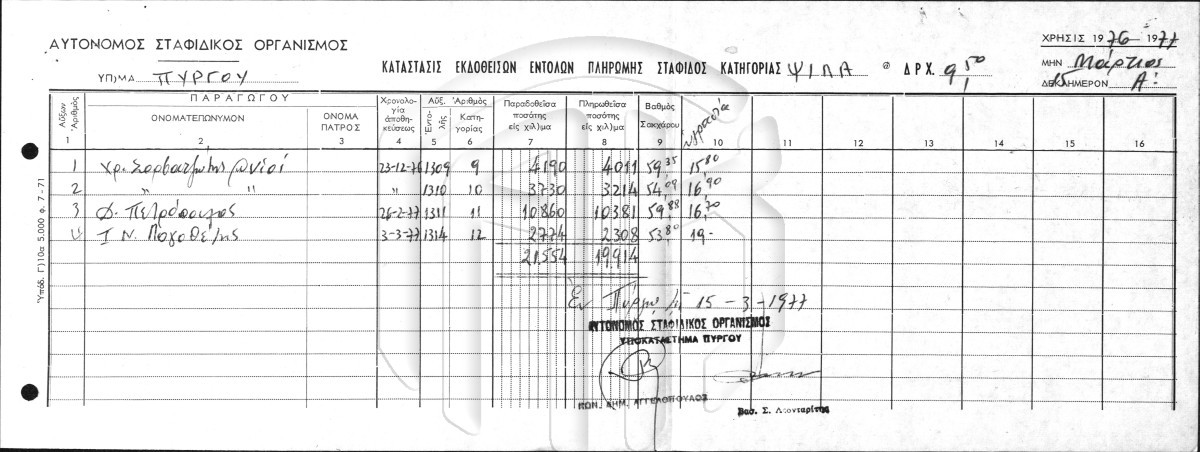 ΑΥΤΟΝΟΜΟΣ ΣΤΑΦΙΔΙΚΟΣ ΟΡΓΑΝΙΣΜΟΣ
ΧΡΗΣΙΣ 1976 - 1977
ΥΠ)ΜΑ ΠΥΡΓΟΥ
ΚΑΤΑΣΤΑΣΙΣ ΕΚΔΟΘΕΙΣΩΝ ΕΝΤΟΛΩΝ ΠΛΗΡΩΜΗΣ ΣΤΑΦΙΔΟΣ ΚΑΤΗΓΟΡΙΑΣ ΨΙΛΑ @ ΔΡΧ. 9,50
ΜΗΝ Μάρτιος
ΔΕΚΑΗΜΕΡΟΝ Α!
Αὔξων Ἀριθμὸς
ΠΑΡΑΓΩΓΟΥ
ΟΝΟΜΑΤΕΠΩΝΥΜΟΝ
ΟΝΟΜΑ ΠΑΤΡΟΣ
Χρονολογία ἀποθηκεύσεως
Αὔξ. Ἀριθμὸς
Ἐντολῆς
Κατηγορίας
Παραδοθεῖσα ποσότης εἰς χιλ)μα
Πληρωθεῖσα ποσότης εἰς χιλ)μα
Βαθμὸς Σακχάρου
Ὑγρασία
1 2 3 4 5 6 7 8 9 10 11 12 13 14 15 16
1 Χρ. 23-12-76 1309 9 4190 4011 59,35 15,80
2 " " " 1310 10 3730 3214 54,09 16,90
3 Φ. Πετρόπουλος 26-2-77 1311 11 10860 10381 59,88 16,70
4 Ι Ν. 3-3-77 1314 12 2774 2308 53,80 19-
21.554 19.914
Ἐν Πύργῳ τῇ 15-3-1977
ΑΥΤΟΝΟΜΟΣ ΣΤΑΦΙΔΙΚΟΣ ΟΡΓΑΝΙΣΜΟΣ
ΥΠΟΚΑΤΑΣΤΗΜΑ ΠΥΡΓΟΥ
ΚΩΝ. ΔΗΜ. ΑΓΓΕΛΟΠΟΥΛΟΣ
Βασ. Σ. Λεονταρίτης
Ὑπόδ. Γ)10α 5.000 φ. 7-71